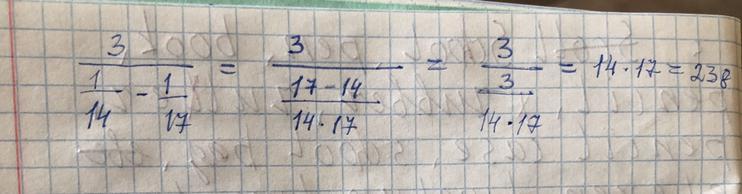 3 / (1/14 - 1/17) = 3 / ((17-14)/(14·17)) = 3 / (3/(14·17)) = 14·17 = 238